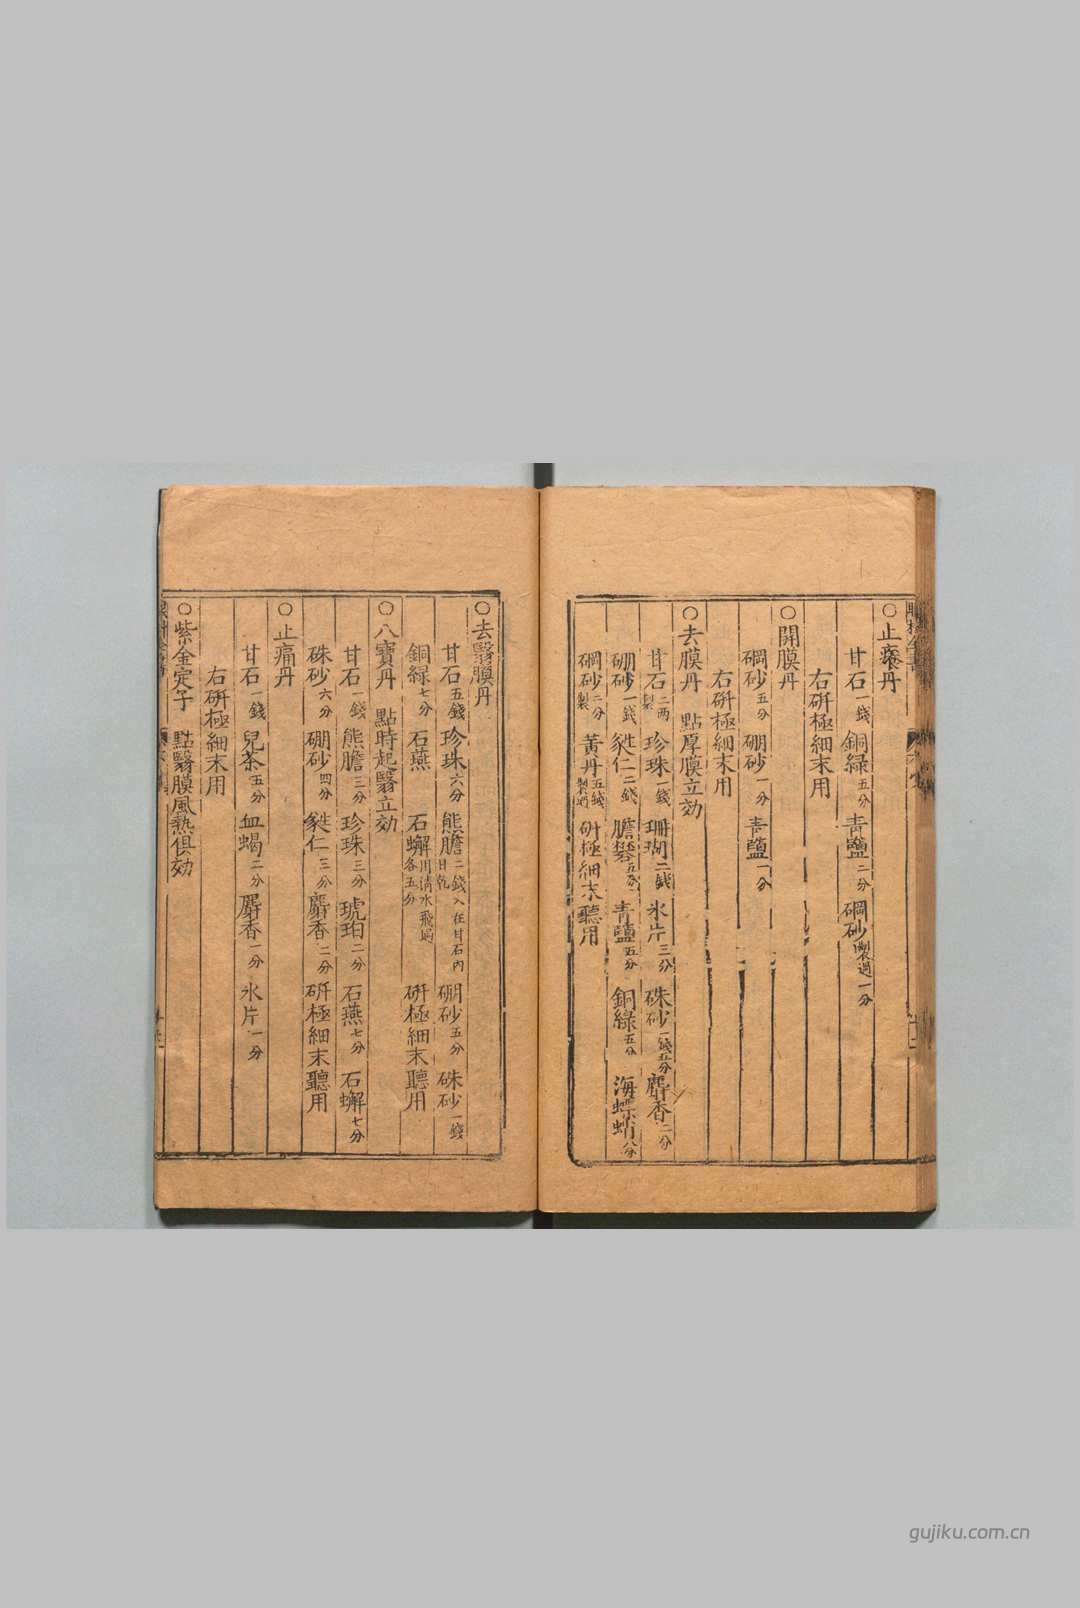 ○止癢丹
甘石一錢 銅綠五分 青鹽二分 碙砂製過一分
右硏極細末用
○開膜丹
碙砂五分 硼砂一分 青鹽一分
右硏極細末用
○去膜丹 點厚膜立効
甘石製二兩 珍珠一錢 珊瑚二錢 氷片三分 硃砂一錢五分 麝香二分
硼砂一錢 㽔仁二錢 膽礬五分 青鹽五分 銅綠五分 海螵蛸八分
碙砂製二分 黃丹五錢製過 硏極細末聽用
○去翳膜丹
甘石五錢 珍珠六分 熊膽二錢入在甘石內日乾 硼砂五分 硃砂一錢
銅綠七分 石燕 石蠏各五分用淸水飛過 硏極細末聽用
○八寶丹 點時起翳立効
甘石一錢 熊膽三分 珍珠三分 琥珀二分 石燕七分 石蠏七分
硃砂六分 硼砂四分 㽔仁三分 麝香二分 硏極細末聽用
○止痛丹
甘石一錢 兒茶五分 血蝎二分 麝香一分 氷片一分
右硏極細末用
○紫金定子 點翳膜風熱俱効
gujiku.com.cn